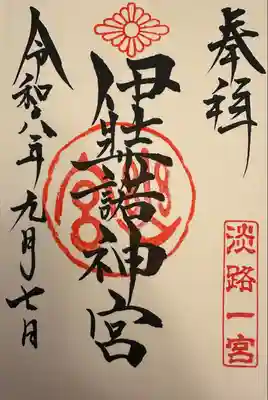 奉拝
淡路一宮
伊弉諾神宮
令和八年九月七日